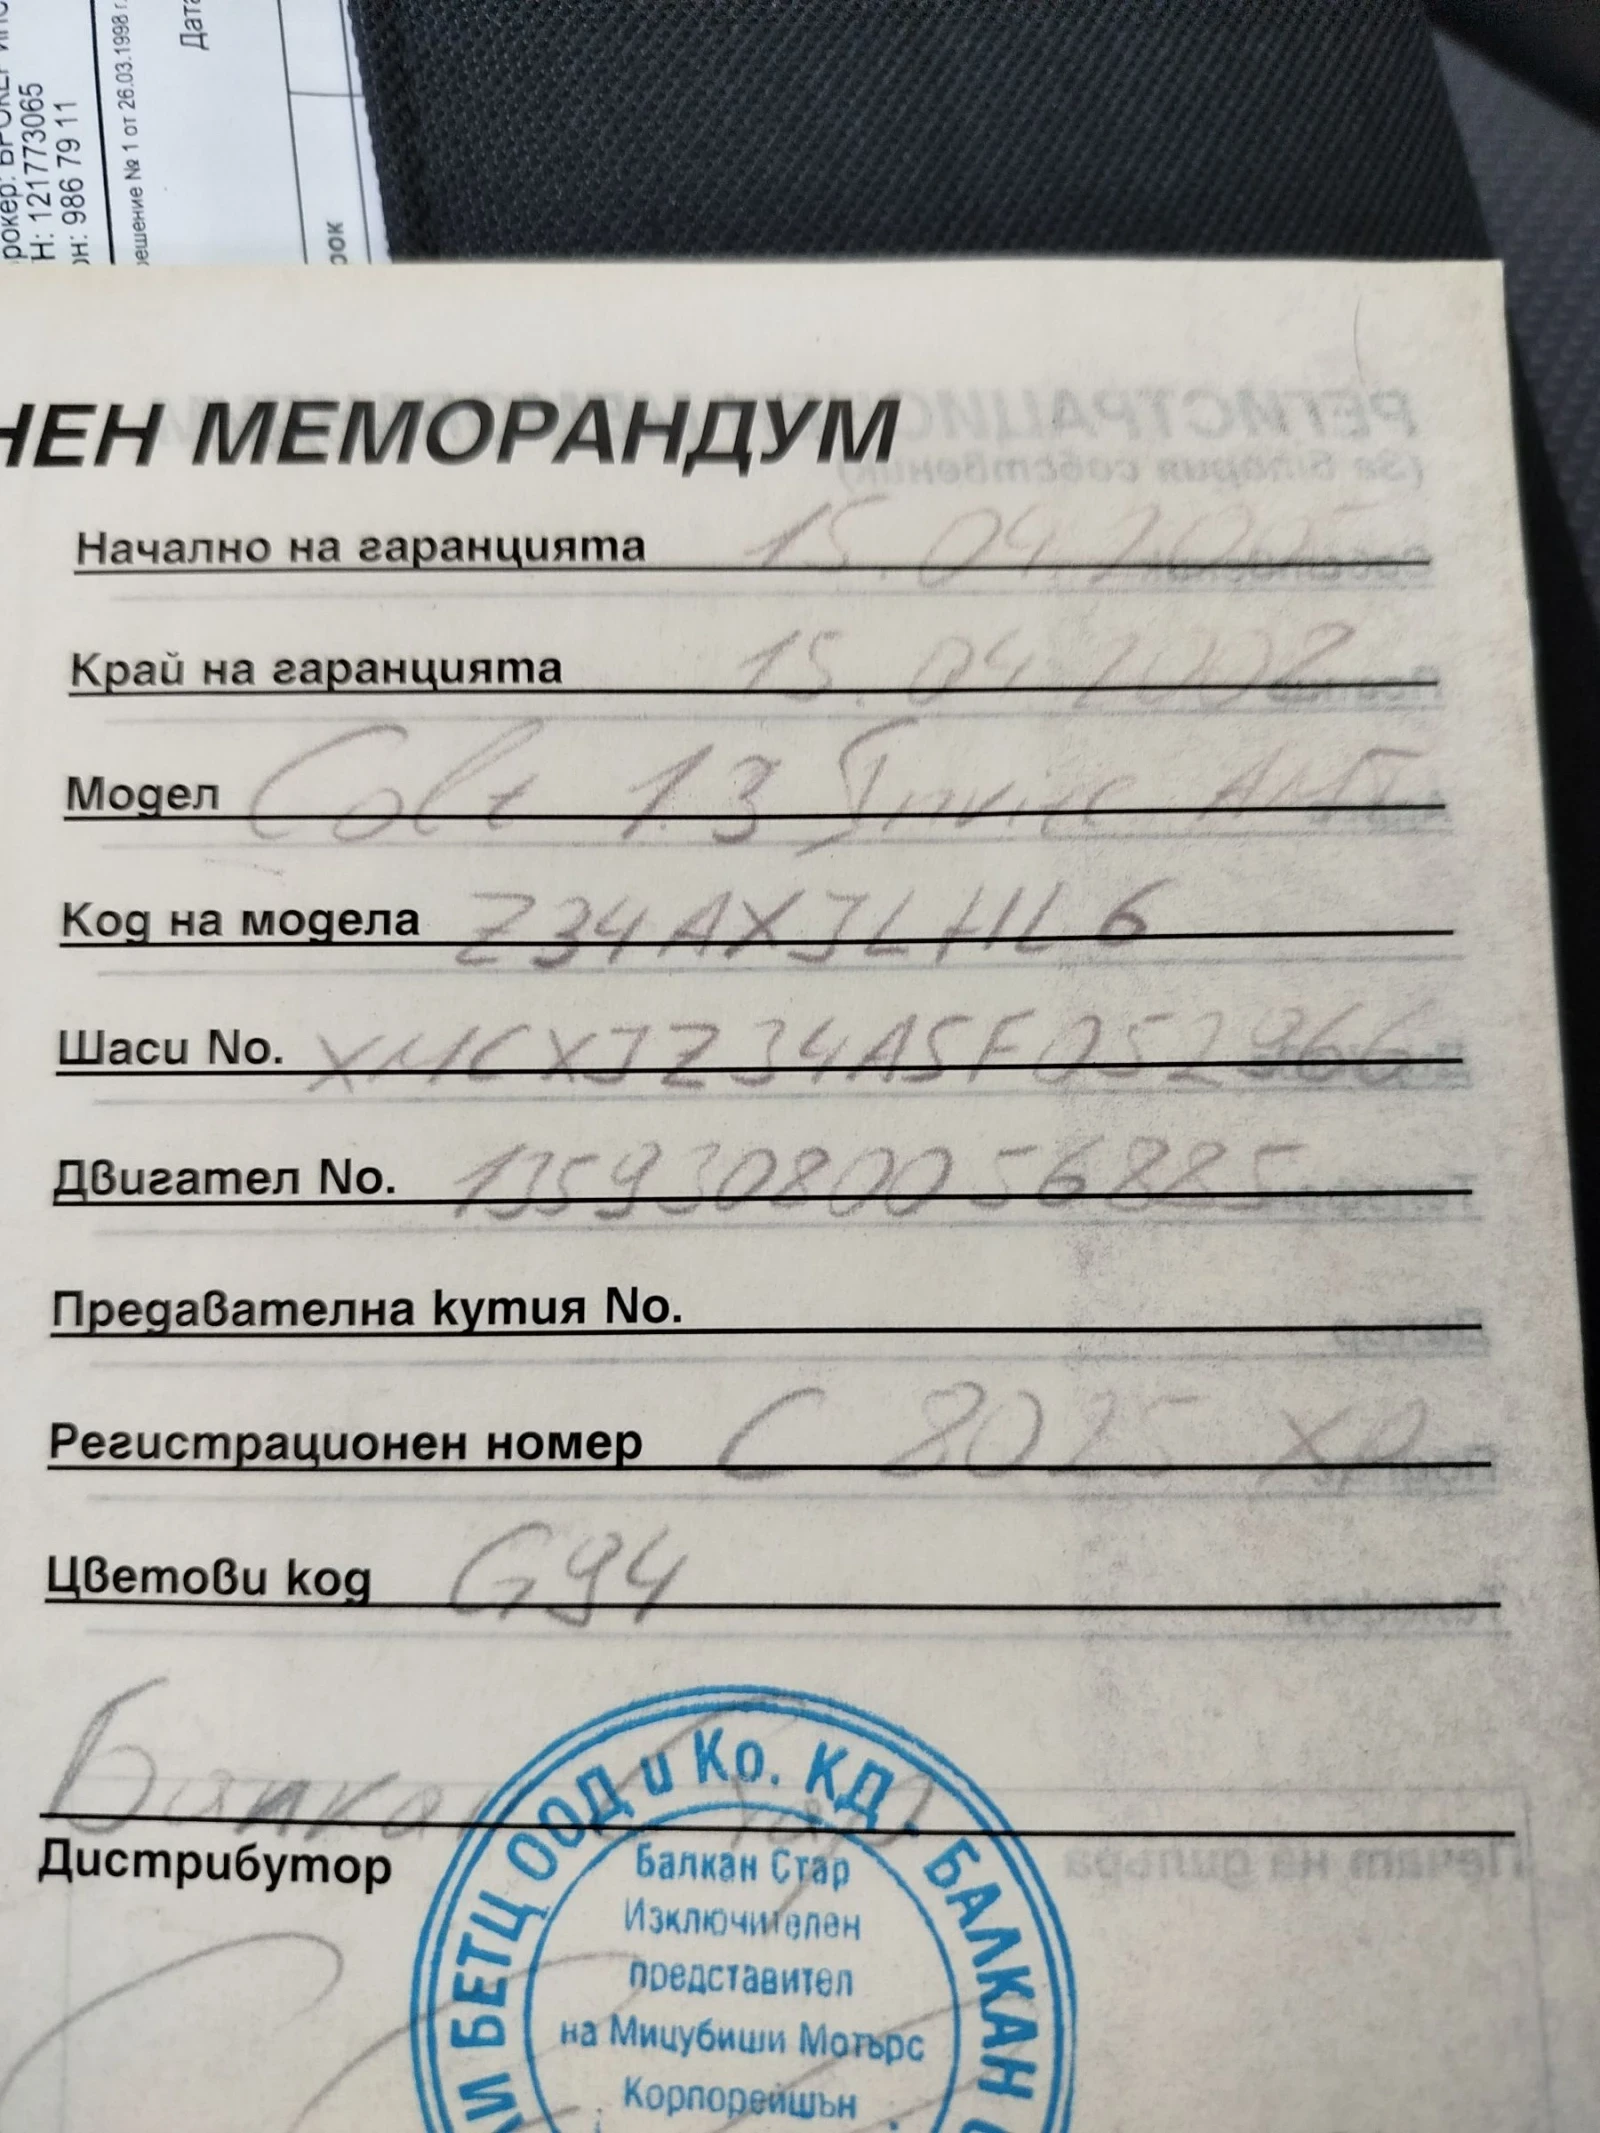 Н: 121773065
н: 986 79 11
ешение № 1 от 26.03.1998 г.
Дата
рок
НЕН МЕМОРАНДУМ
Начално на гаранцията 15.04.2005
Край на гаранцията 15.04.2008
Модел Colt 1.3 Invite AMT
Код на модела Z34AXJLHL6
Шаси No. XMCXJZ34A5F052966
Двигател No. 13593080056885
Предавателна кутия No.
Регистрационен номер С 8025 ХА
Цветови код G94
Балкан Стар
Дистрибутор
БЕТЦ ООД и Ко. КД. БАЛКАН
Балкан Стар
Изключителен
представител
на Мицубиши Мотърс
Корпорейшън